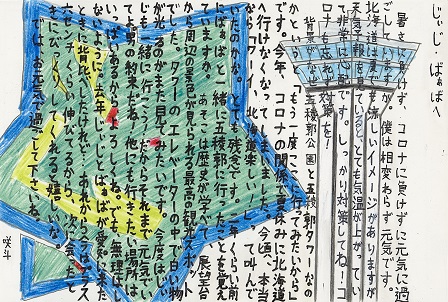 じぃじ ばぁばへ
暑さに負けず、コロナに負けずに元気に過
ごしていますか。僕は相変わらず元気です。
北海道は夏でも涼しいイメージがありますが
天気予報を見ていると、とても気温が上がってい
て非常に心配です。しっかり対策してね！コ
ロナも忘れず対策を！
背景がなぜ五稜郭公園と五稜郭タワーなの
かというと「もう一度ここに行ってみたいから。」
です。今年、コロナの関係で夏休みに北海道
へ行けなくなってしまいました。今頃、本当
なら「ワーイ、北海道楽しい！」って叫んで
いたのかな。とても残念です。二年くらい前
にばぁばと一緒に五稜郭に行ったことを覚え
ていますか。あそこは歴史が学べて、展望台
から周辺の景色が見られる最高の観光スポット
でした。タワーのエレベーターの中で白い物
が光るのがまた見てみたいです。今度はじぃ
じも一緒に行こう！だからそれまで元気でい
てよ。男の約束だね！他にも行きたい場所は
いっぱいあるからよろしくね。でも、無理はし
ないように。去年、じぃじとばぁばが愛知に来た
ときに背比べしたけれど…あれから今はプラス
六センチくらい伸びてるから、次に会ったと
きにびっくりしてくれると嬉しいな。
では、お元気で過ごして下さいね。
咲斗